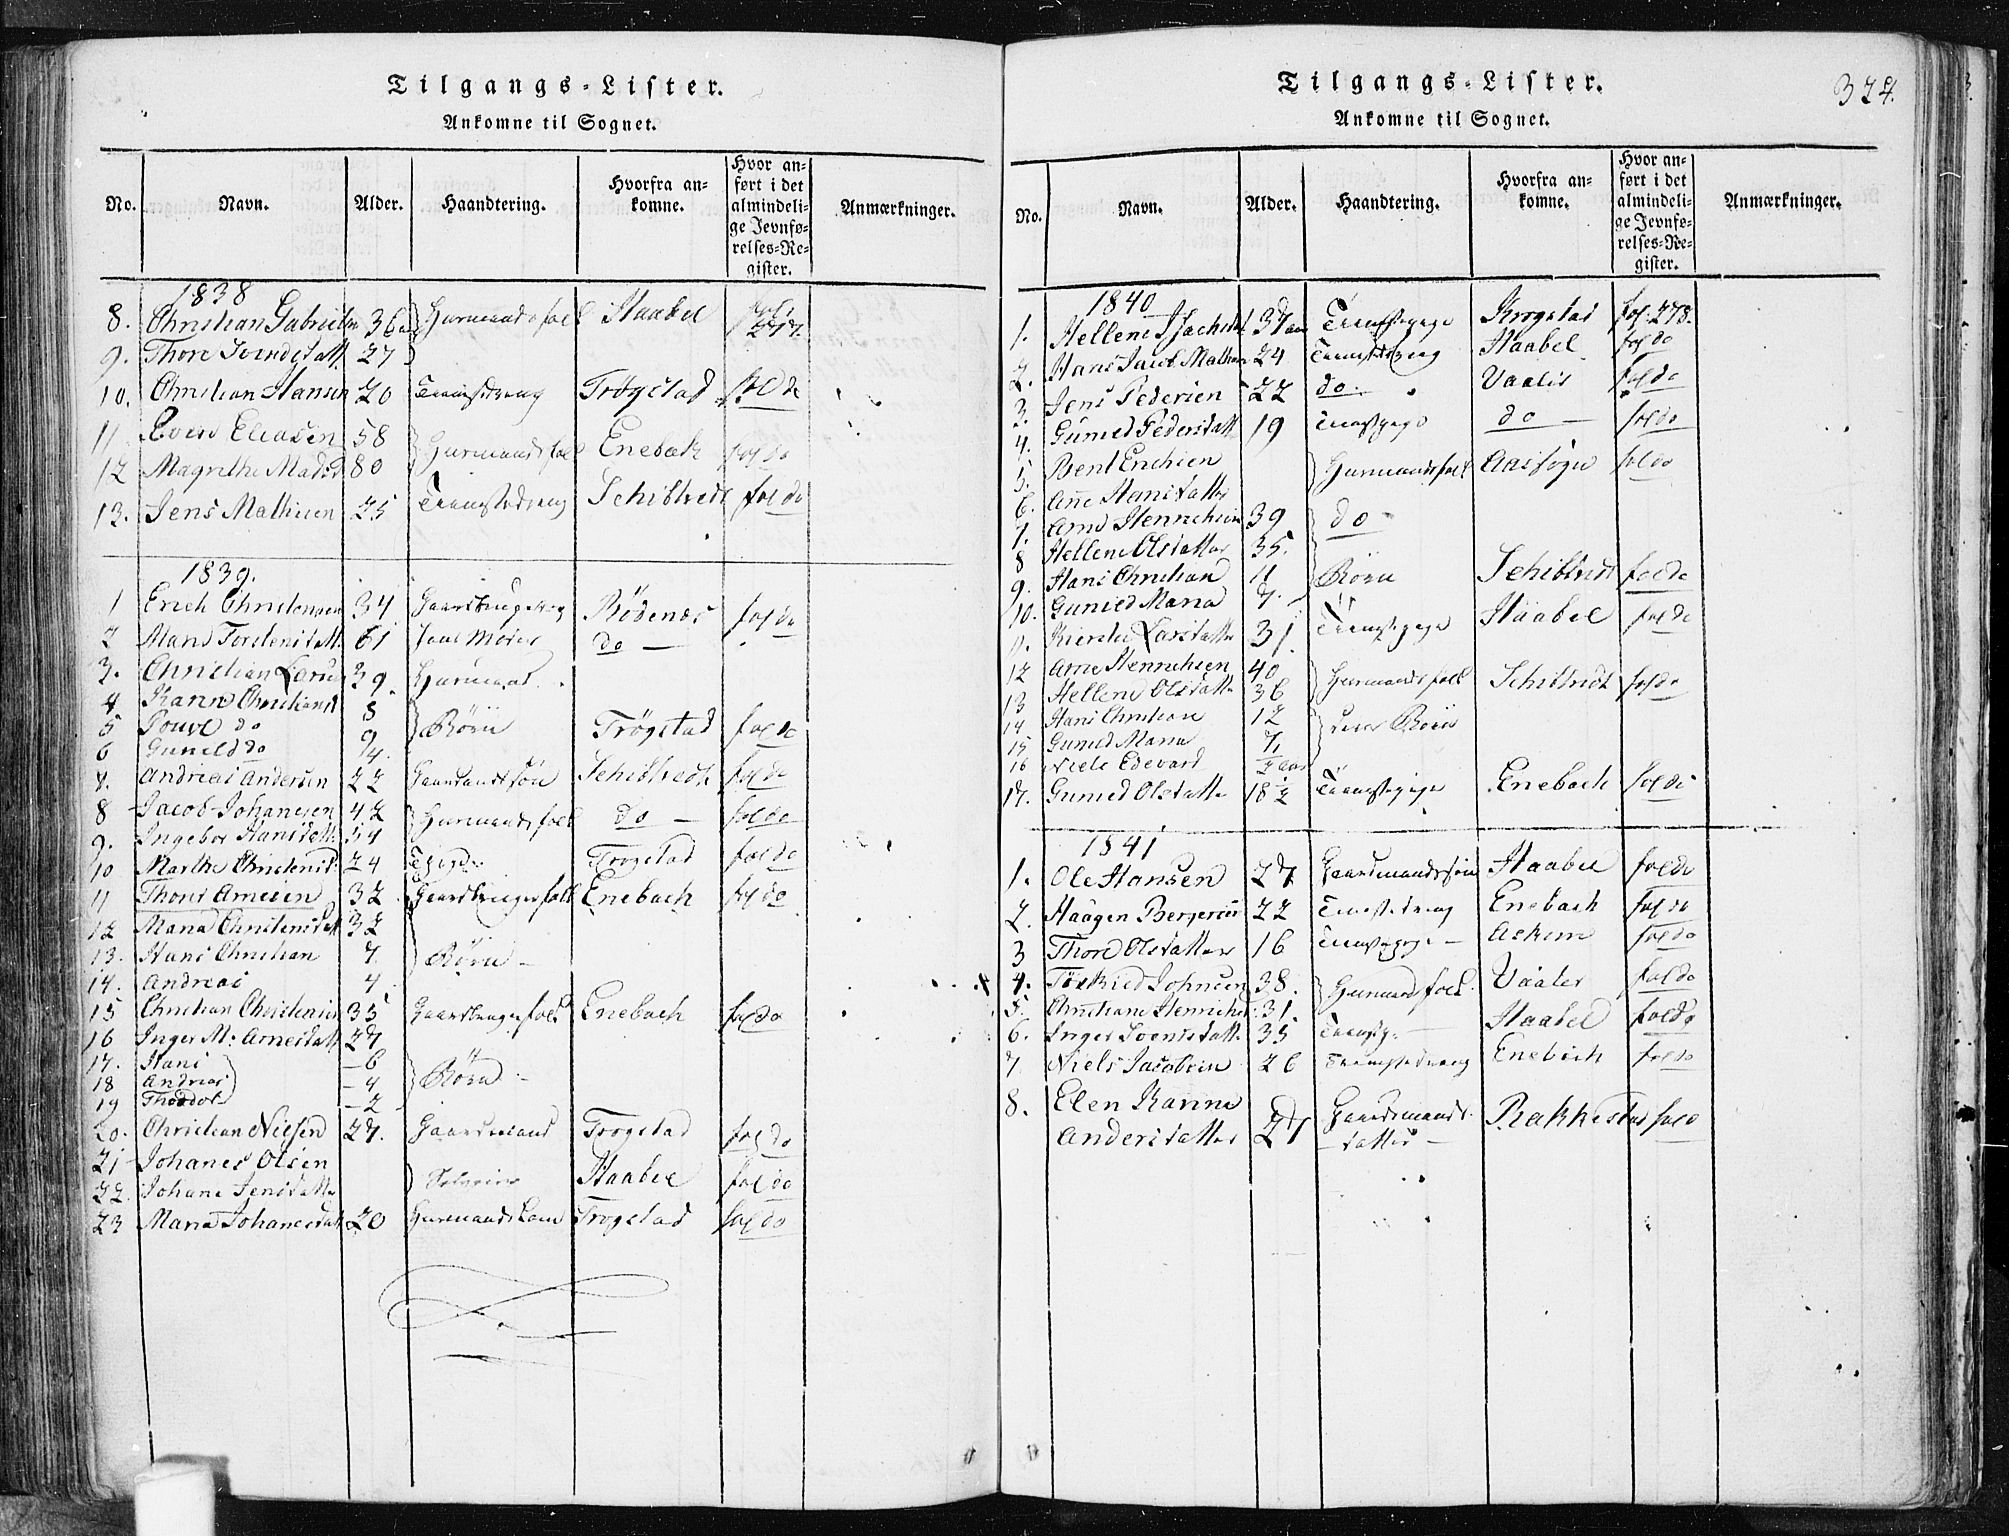 Tilgangs-Lister.
Ankomne til Sognet.
No. Navn. Alder. Haandtering. Hvorfra ankomne. Hvor anført i det almindelige Jevnførelses-Register. Anmærkninger.
1838
8. Christian Gabrielsen 36 Huusmandsfolk Haabel fol. 277.
9. Thore Svendsdatt. 27
10. Christian Hansen 20 Tienestedreng Trøgstad fol do
11. Even Eliasen 58 Huusmandsfolk Enebak fol do
12 Magrethe Madsd 80
13. Jens Mathisen 25 Tienestedreng Schibtvedt fol do
1839.
1 Erich Christensen 34 Gaardbruger Rödenæs fol do
2 Mari Torstensdatt. 61 do
3. Christian Larsen 39. Huusmand
4 Karen Christiansd 8 Børn Trøgstad fol do
5 Povel do 9
6 Guneld do 4.
7. Andreas Andersen 22 Gaardmandssøn Schibtvedt fol do
8 Jacob Johanesen 42 Huusmandsfolk do fol do
9. Ingebor Hansdatt. 54
10 Marthe Christensd. 24 T.pige Trøgstad fol do
11 Thovs Arnesen 32 Gaardbrugerfolk Enebach fol do
12 Maria Christensdatt 32
13. Hans Christian 7 Børn
14. Andreas 4
15 Christian Christiansen 35 Gaardbrugerfolk Enebach fol do
16 Inger M: Arnesdatt 27
17. Hans 6 Børn
18 Andreas 4
19 Theodor 2
20. Christian Nielsen 27. Gaardmand Trøgstad fol do
21 Johanes Olsen Haabel fol do
22. Johane Jensdatter
23 Maria Johanesdatt 20 Huusmandskone Trøgstad fol do
Tilgangs-Lister.
Ankomne til Sognet.
374.
No. Navn. Alder. Haandtering. Hvorfra ankomne. Hvor anført i det almindelige Jevnførelses-Register. Anmærkninger.
1840
1. Hellene Isachsd 37 aar Tienestepige Krogstad fol. 278.
2. Hans Jacob Mathisen 24 Tienestedreng Haabel fol do
3. Jens Pedersen 22 do Vaaler fol do
4. Guneld Pedersdatt 19 Tienestepige do fol do
5. Bent Erichsen Huusmandsfolk Aassogn fol do
6. Ane Hansdatter
7. Arne Henrichsen 39 do
8 Hellene Olsdatter 35.
9. Hans Christian 11 Børn Schibtvedt fol do
10. Guneld Maria 7.
11. Kirsti Larsdatter 31 Tienestepige Haabel fol do
12 Arne Henrichsen 40 Huusmandsfolk Schibtvedt fol do
13 Hellene Olsdatter 36
14 Hans Christian 12 deres Børn
15 Guneld Maria 7
16 Niels Edevard 2 aar
17. Guneld Olsdatter 18½ Tienestepige Enebach fol do
1841
1. Ole Hansen 27 Gaardmandssøn Haabel fol do
2. Haagen Bergersen 22 Tienestedreng Enebach fol do
3 Thore Olsdatter 16 Tienestepige Askim fol do
4. Johnsen 38. Huusmandsfolk Vaaler fol do
5. Christiane Henrichsd. 31.
6. Inger Svendsdatt. 35 Tienestp. Haabel fol do
7 Niels Jacobsen 26 Tienestedreng Enebach fol do
8. Elen Karine Andersdatter 27 Gaardmandsdatter Rakkestad fol do